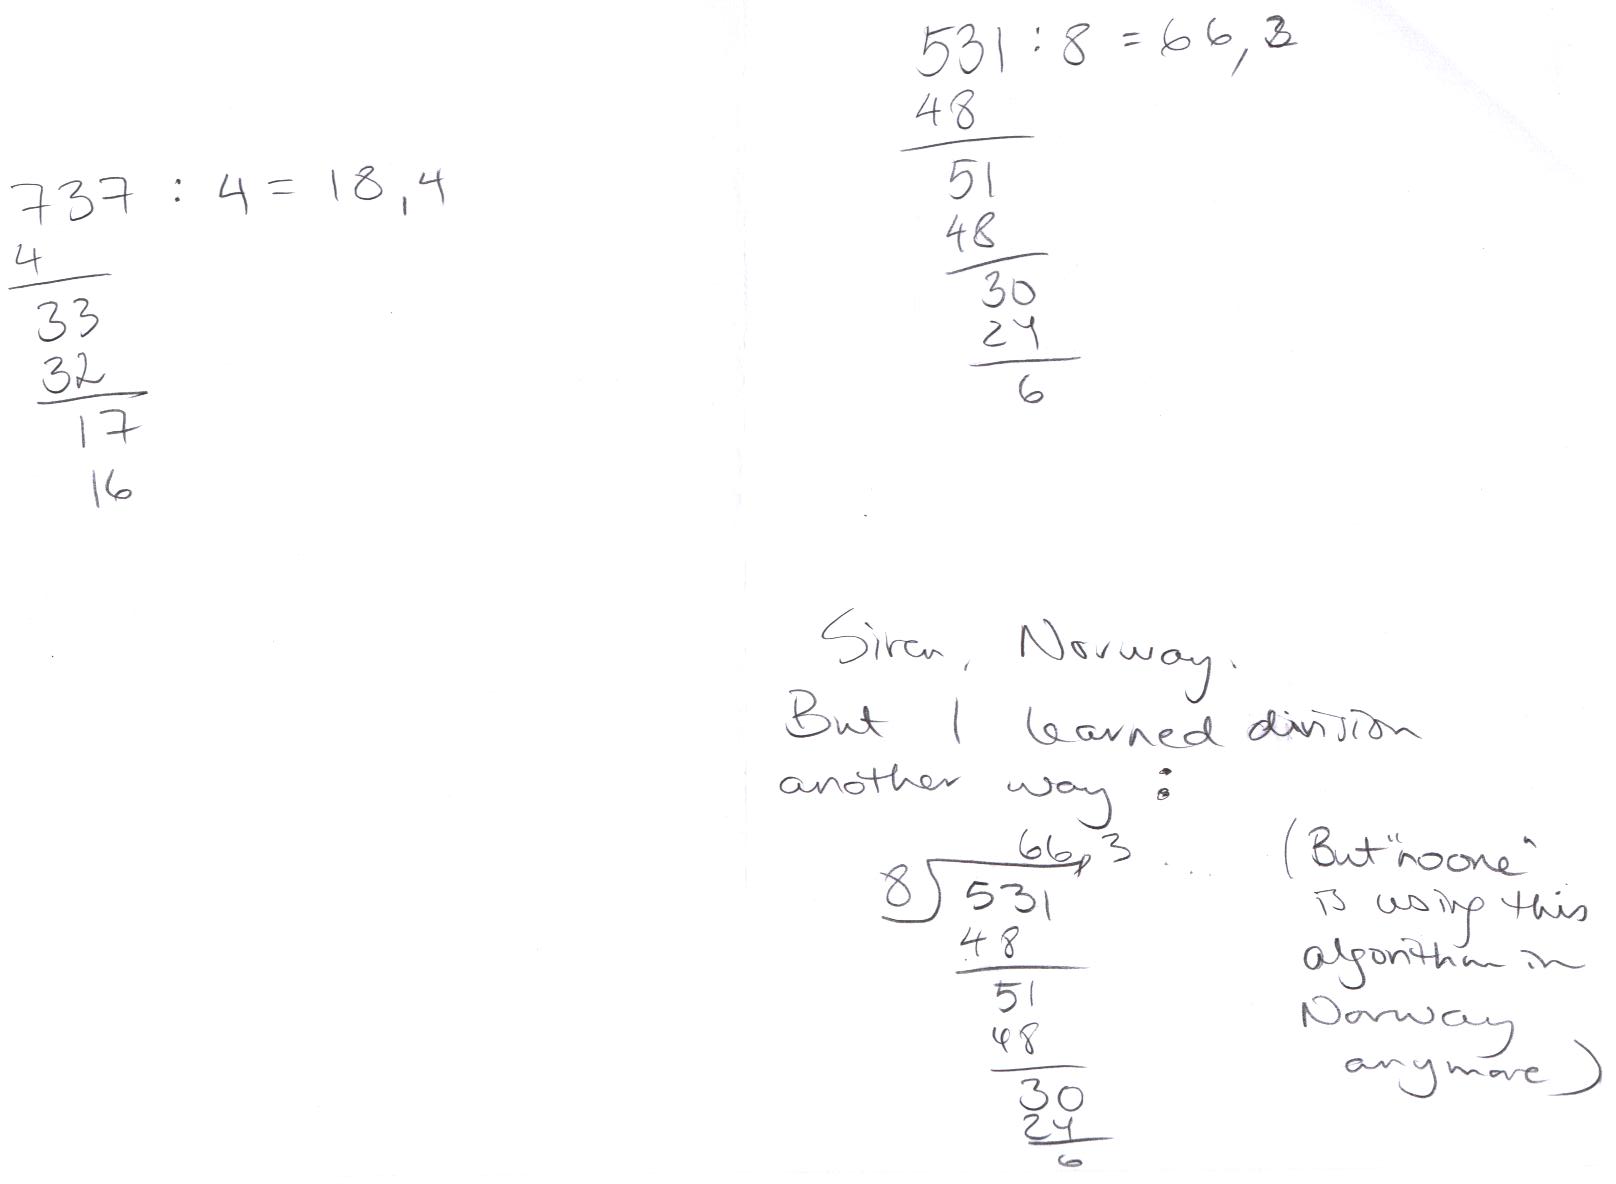 737 : 4 = 18,4
4
33
32
17
16
531 : 8 = 66,3
48
51
48
30
24
6
Siren, Norway.
But I learned division
another way :
66,3 ...
8 531
48
51
48
30
24
6
(But "no one"
is using this
algorithm in
Norway
anymore)